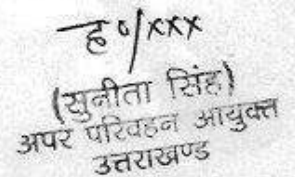 ह०/xxx
(सुनीता सिंह)
अपर परिवहन आयुक्त
उत्तराखण्ड